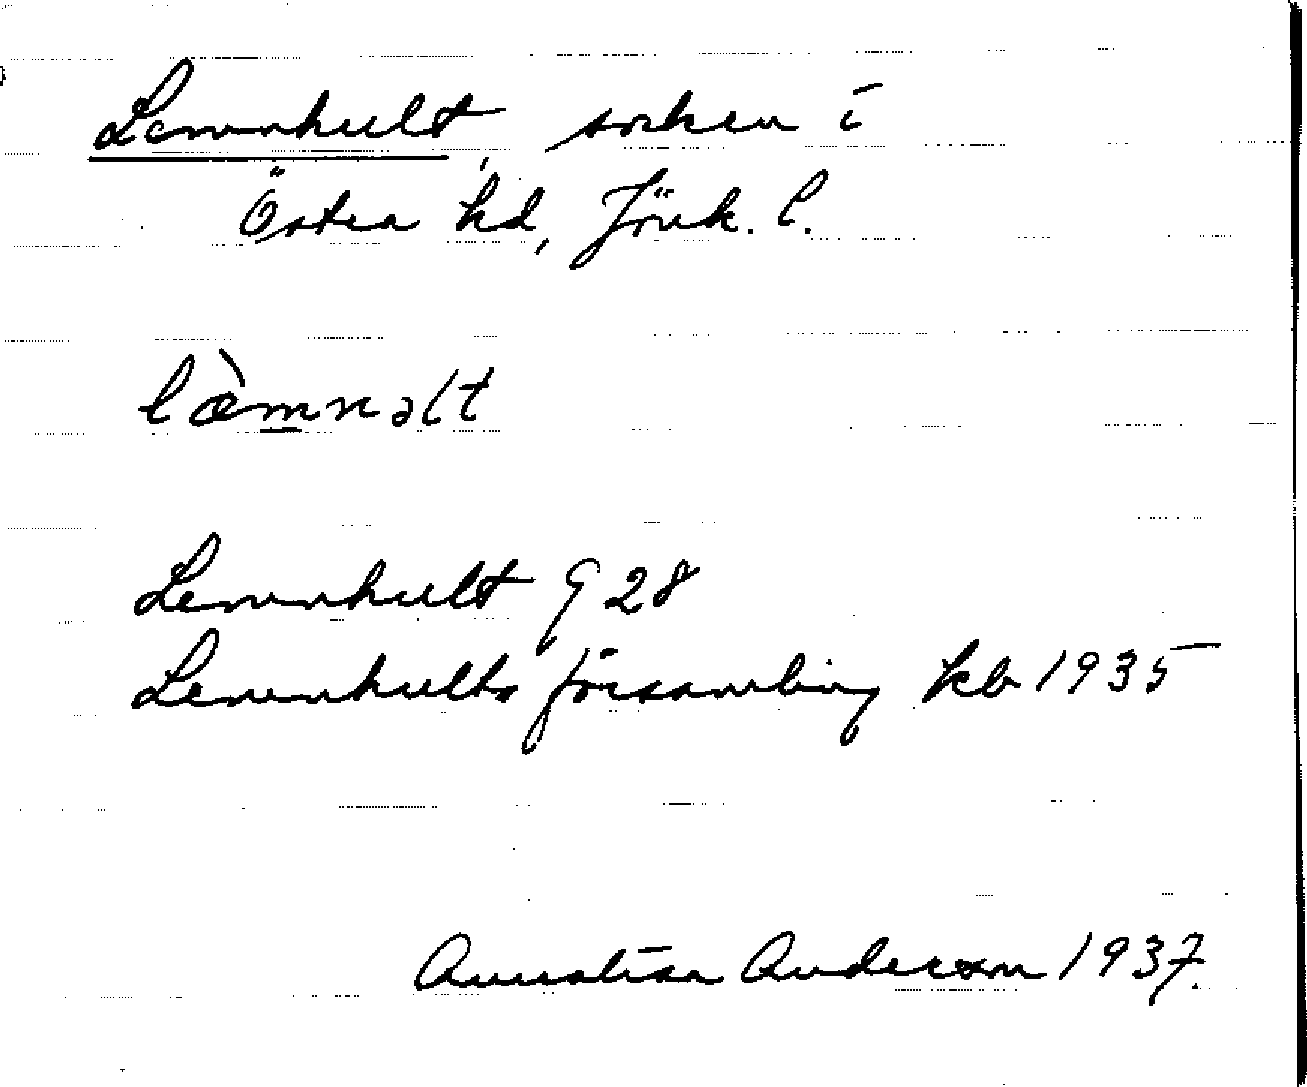 Lemnhult, socken i
Östra hd, Jönk. l.
læ̀mnəlt
Lemnhult G 28
Lemnhults församling kb 1935
Anderson 1937.